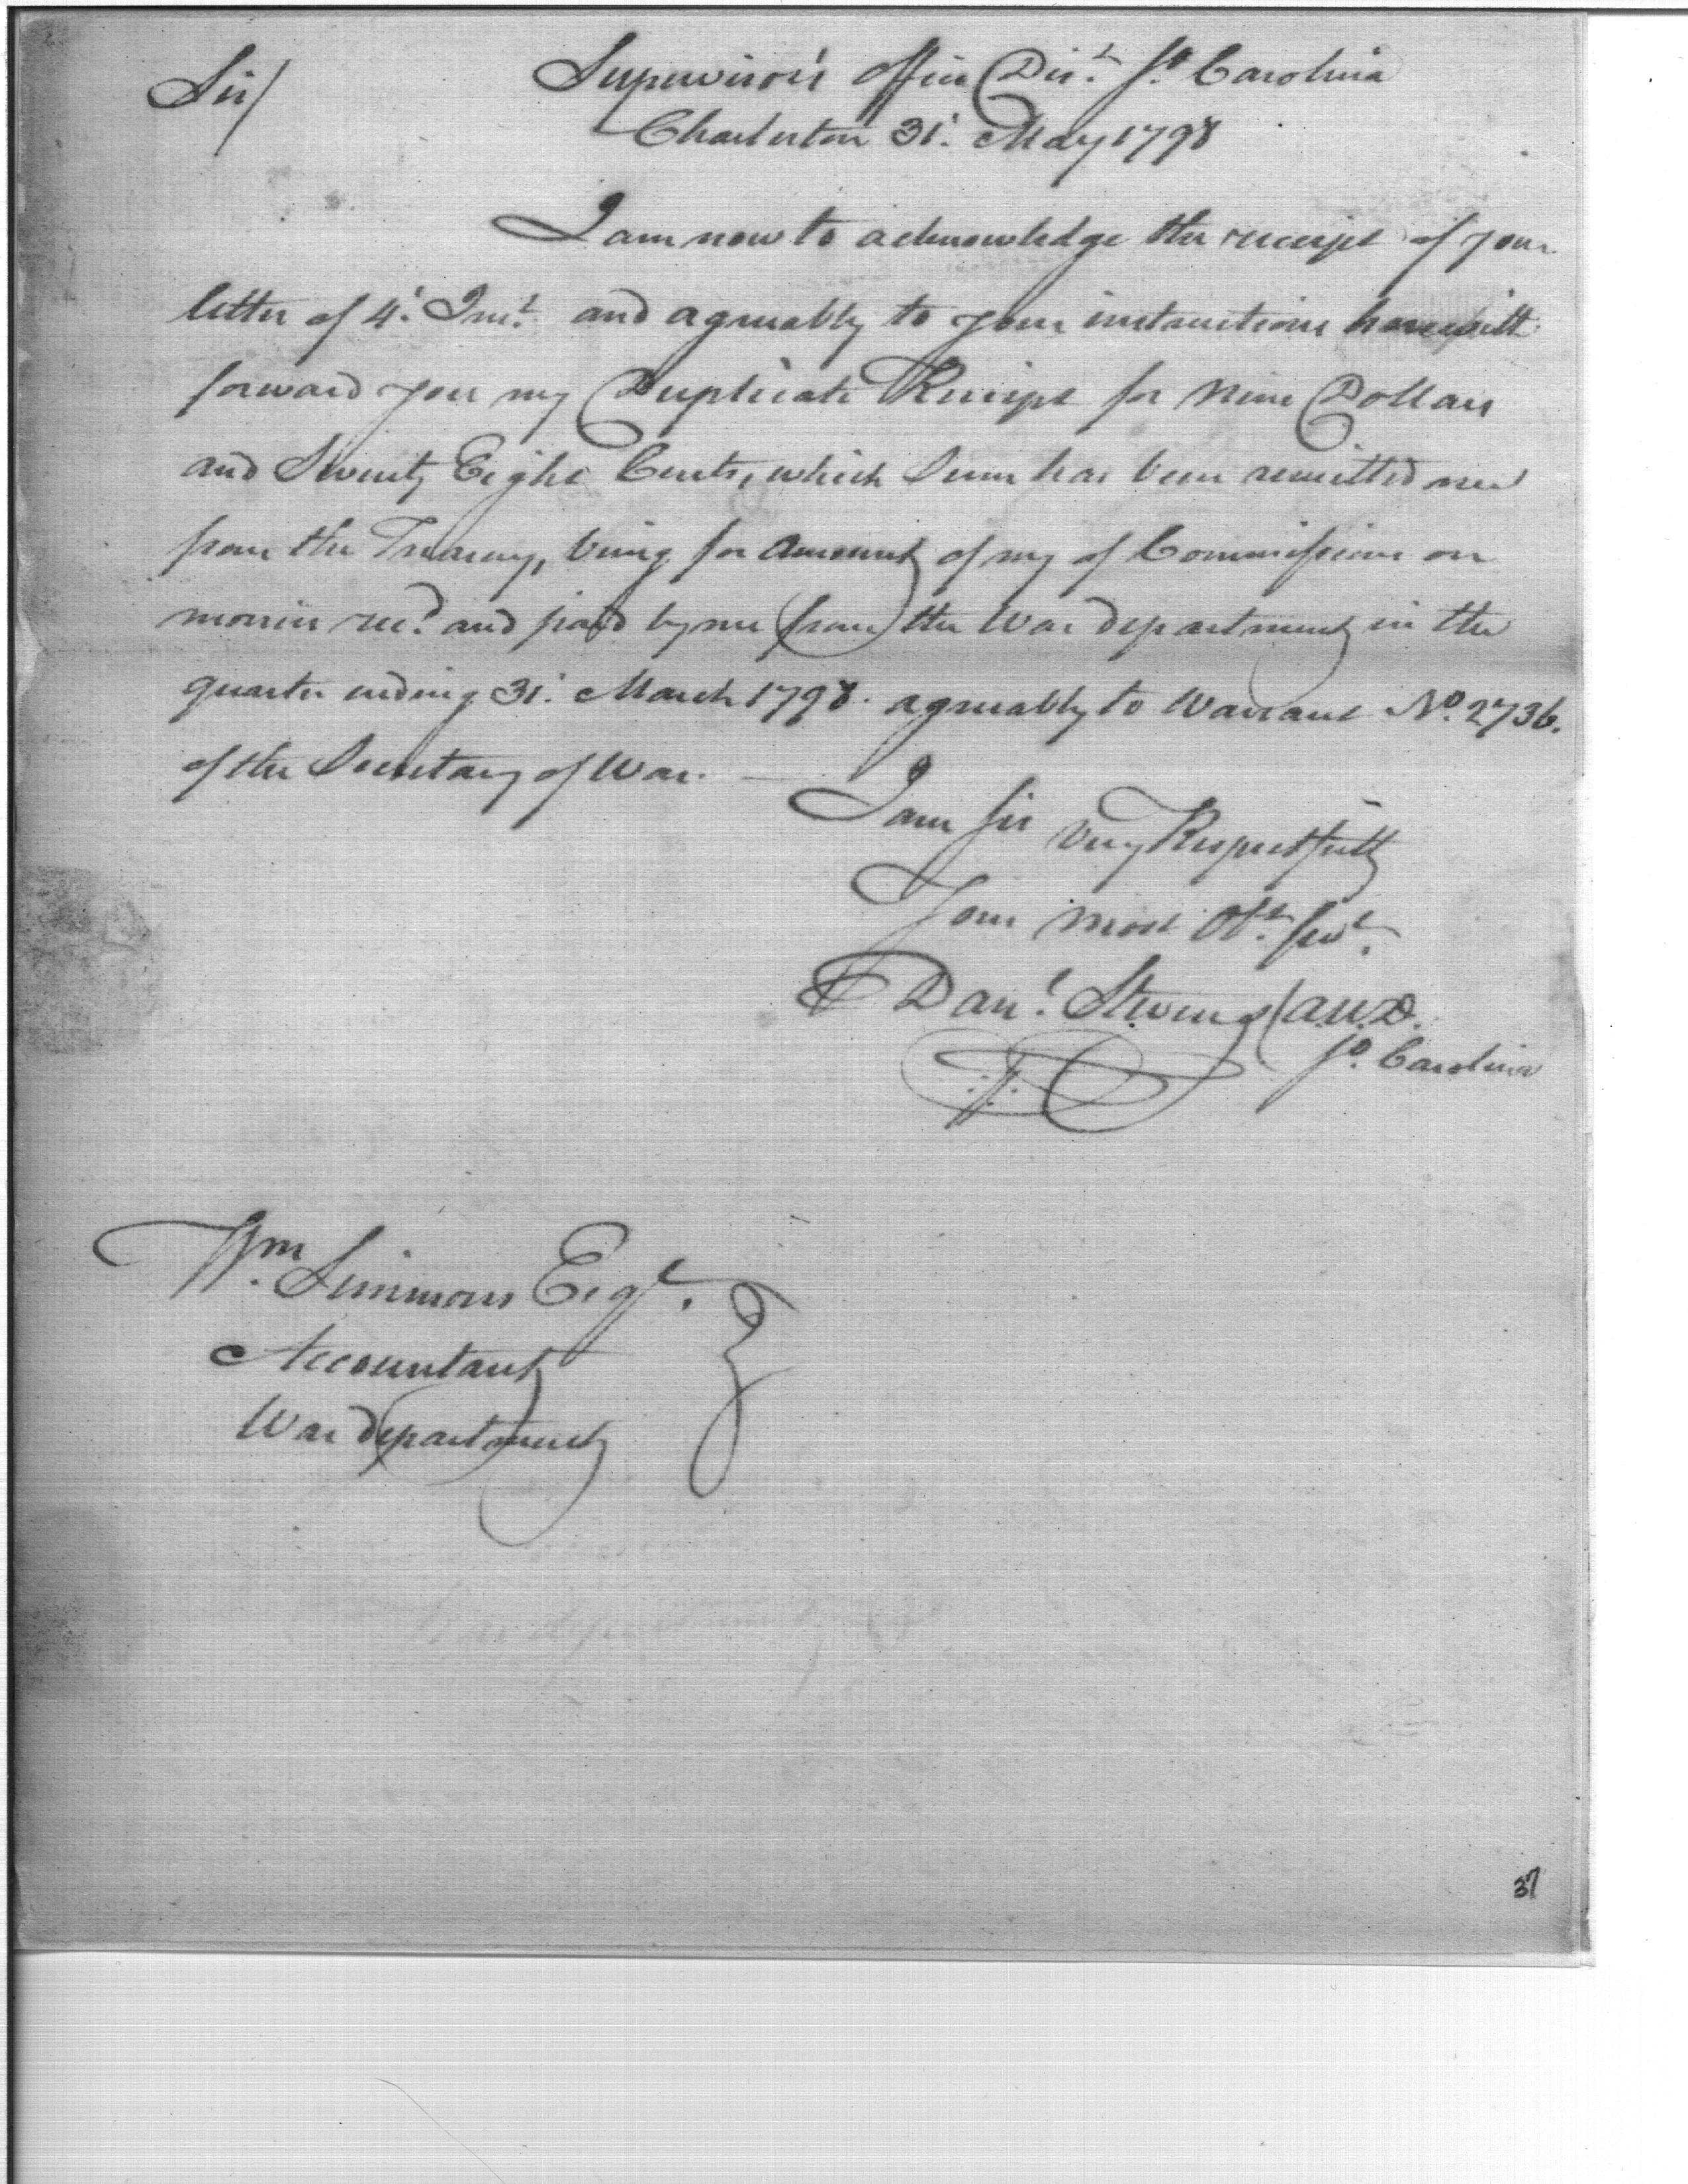 Sir/
Supervisor's Office Dist. So. Carolina
Charleston 31st. May 1798
I am now to acknowledge the receipt of your
letter of 4th. Inst. and agreeably to your instructions herewith
forward you my Duplicate Receipt for Nine Dollars
and Twenty Eight Cents, which Sum has been remitted me
from the Treasury, being for Amount of my of Commissions on
monies recd. and paid by me from the War department in the
quarter ending 31st. March 1798. agreeably to Warrant No. 2736.
of the Secretary of War. —
I am Sir Very Respectfully
Your most Obt. Servt.
Danl. Stevens
So. Carolina
Wm. Simmons Esqr.
Accountant
War department
37